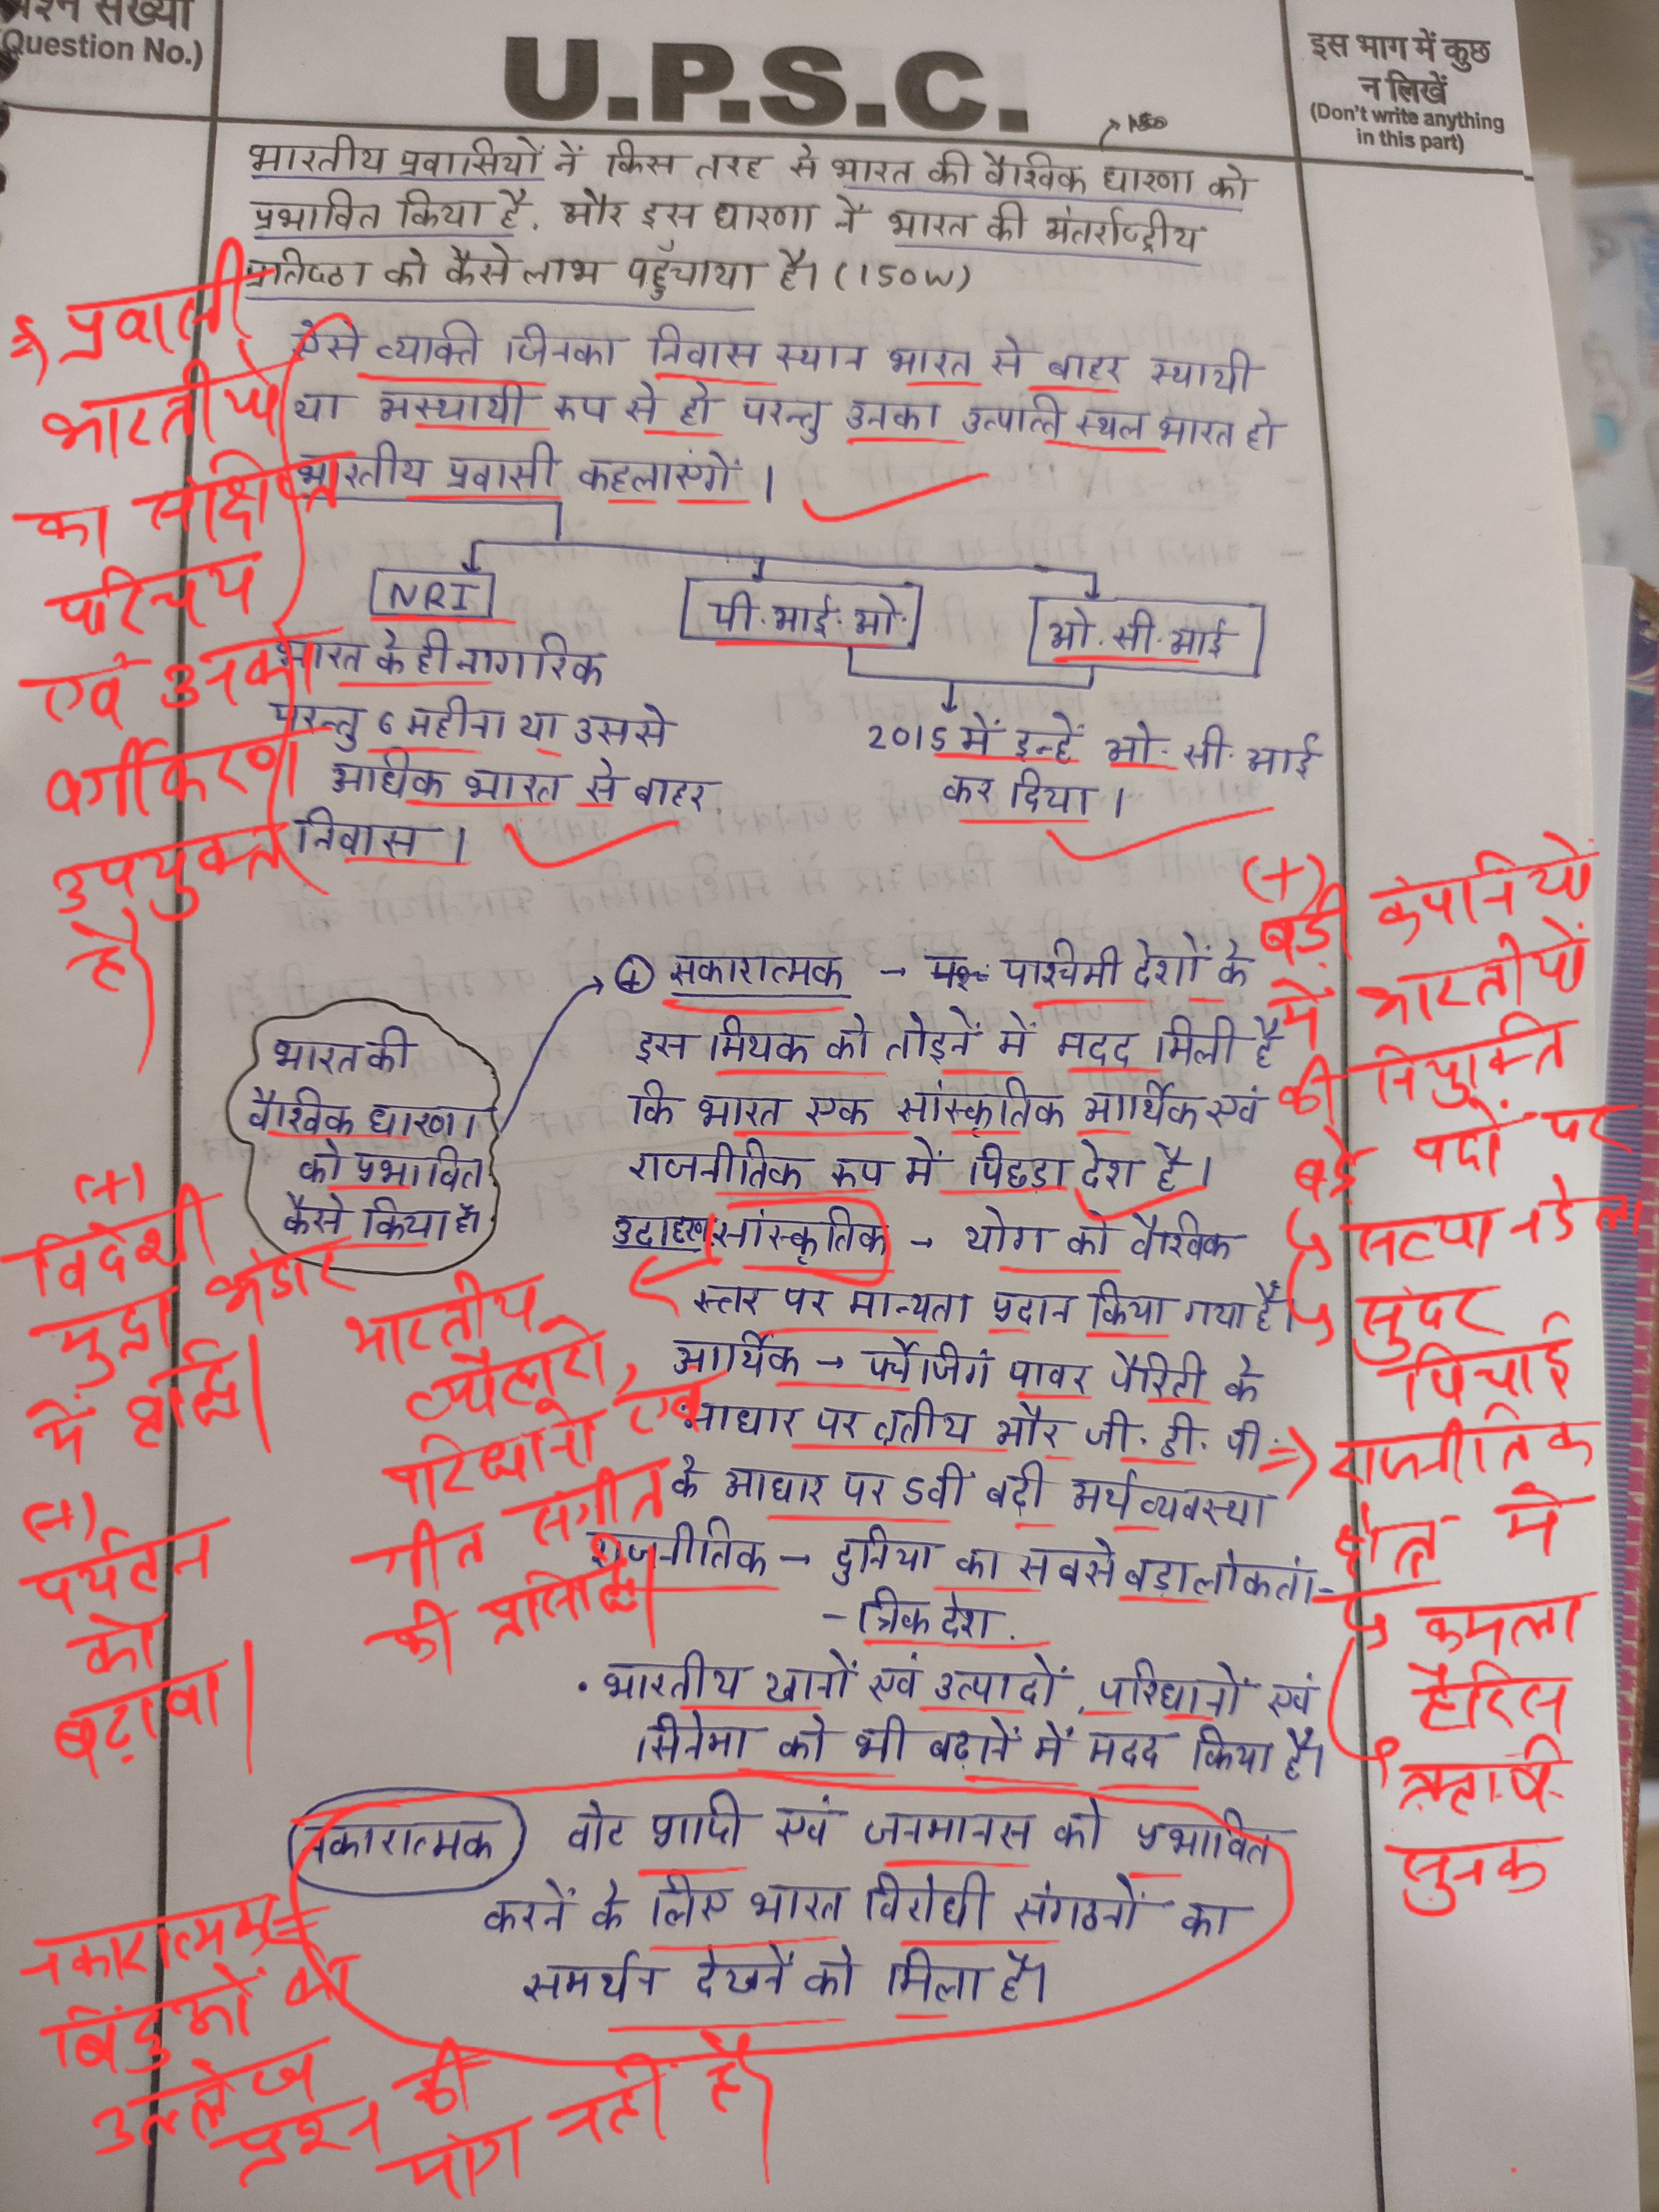 प्रश्न संख्या
(Question No.)
U.P.S.C.
इस भाग में कुछ
न लिखें
(Don't write anything
in this part)
भारतीय प्रवासियों नें किस तरह से भारत की वैश्विक धारणा को
प्रभावित किया है, और इस धारणा ने भारत की अंतर्राष्ट्रीय
प्रतिष्ठा को कैसे लाभ पहुँचाया है। (150W)
ऐसे व्यक्ति जिनका निवास स्थान भारत से बाहर स्थायी
या अस्थायी रूप से हो परन्तु उनका उत्पत्ति स्थल भारत हो
भारतीय प्रवासी कहलाएंगें ।
NRI
पी.आई.ओ.
ओ.सी.आई
भारत के ही नागरिक
परन्तु 6 महीना या उससे
अधिक भारत से बाहर
निवास ।
2015 में इन्हें ओ.सी.आई
कर दिया ।
प्रवासी
भारतीयों
का संक्षिप्त
परिचय
एवं उनका
वर्गीकरण
उपयुक्त
है।
भारत की
वैश्विक धारणा
को प्रभावित
कैसे किया है।
(+) सकारात्मक → पाश्चिमी देशों के
इस मिथक को तोड़नें में मदद मिली है
कि भारत एक सांस्कृतिक आर्थिक एवं
राजनीतिक रूप में पिछड़ा देश है ।
उदाहरण सांस्कृतिक → योग को वैश्विक
स्तर पर मान्यता प्रदान किया गया है।
आर्थिक → पर्चेजिंग पावर पैरिटी के
आधार पर तृतीय और जी.डी.पी.
के आधार पर 5वी बड़ी अर्थव्यवस्था
राजनीतिक → दुनिया का सबसे बड़ा लोकतां-
-त्रिक देश.
• भारतीय खानों एवं उत्पादों, परिधानों एवं
सिनेमा को भी बढ़ानें में मदद किया है।
नकारात्मक वोट प्राप्ती एवं जनमानस को प्रभावित
करनें के लिए भारत विरोधी संगठनों का
समर्थन देखनें को मिला है।
(+)
बड़ी कंपनियों
में भारतीयों
की नियुक्ति
बड़े पदों पर
↳ सत्या नडेला
↳ सुंदर
पिचाई
=> राजनीतिक
क्षेत्र में
↳ कमला
हैरिस
ऋषि
सुनक
(+)
विदेशी
मुद्रा भंडार
में वृद्धि।
(+)
पर्यटन
को
बढ़ावा।
भारतीय
त्यौहारों,
परिधानों, एवं
गीत संगीत
की प्रसिद्धि।
नकारात्मक
बिंदुओं का
उल्लेख
प्रश्न की
मांग नहीं है।